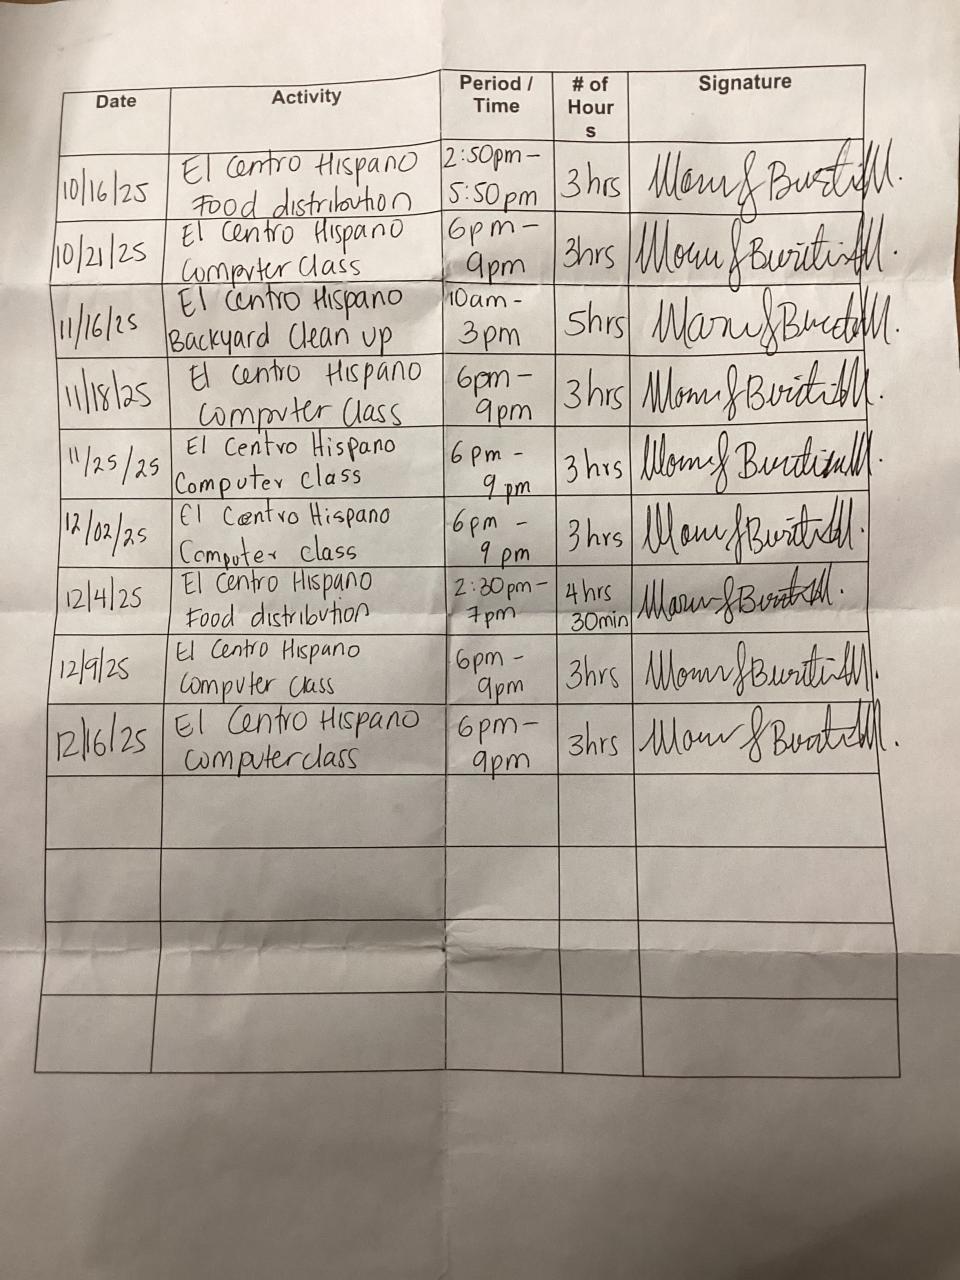 Date Activity Period / Time # of Hours Signature
10/16/25 El Centro Hispano Food distribution 2:50pm- 5:50pm 3hrs
10/21/25 El Centro Hispano Computer Class 6pm- 9pm 3hrs
11/16/25 El Centro Hispano Backyard Clean up 10am- 3pm 5hrs
11/18/25 El Centro Hispano Computer Class 6pm- 9pm 3hrs
11/25/25 El Centro Hispano Computer class 6pm- 9pm 3hrs
12/02/25 El Centro Hispano Computer class 6pm- 9pm 3hrs
12/4/25 El Centro Hispano Food distribution 2:30pm- 7pm 4hrs 30min
12/9/25 El Centro Hispano Computer Class 6pm- 9pm 3hrs
12/16/25 El Centro Hispano Computer class 6pm- 9pm 3hrs